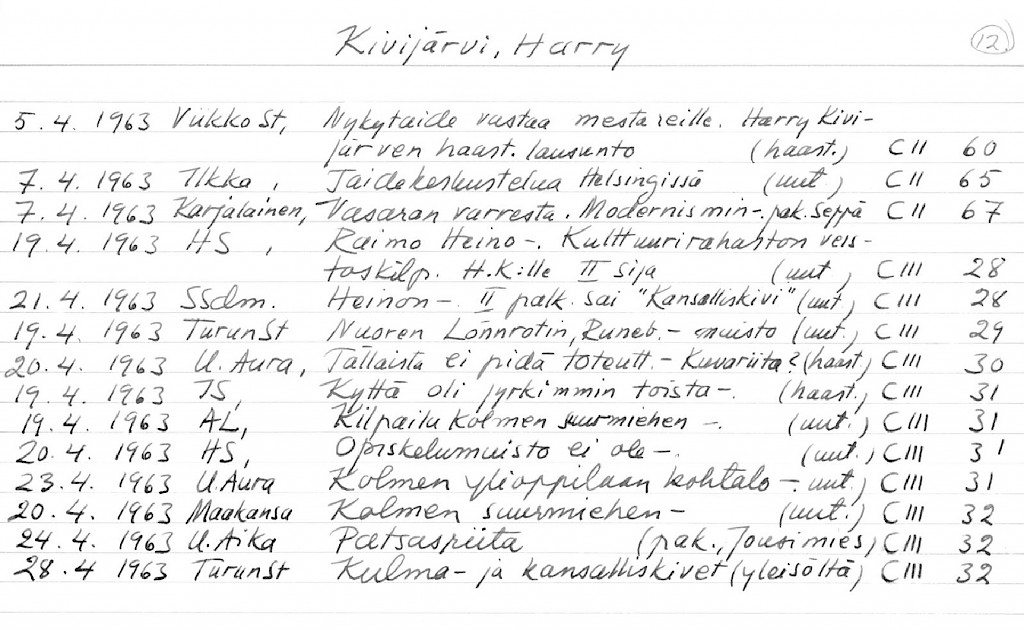 Kivijärvi, Harry 12.
5.4. 1963 ViikkoSt, Nykytaide vastaa mestareille. Harry Kivi-
järven haast. lausunto (haast.) CII 60
7.4. 1963 Ilkka, Taidekeskustelua Helsingissä (uut.) CII 65
7.4. 1963 Karjalainen, Vasaran varresta. Modernismin-. pak. Seppä CII 67
19.4. 1963 HS, Raimo Heino-. Kulttuurirahaston veis-
toskilp. H.K:lle II sija (uut.) CIII 28
21.4. 1963 SSdm. Heinon-. II palk. sai "Kansalliskivi" (uut) CIII 28
19.4. 1963 TurunSt Nuoren Lönnrotin, Runeb.- muisto (uut.) CIII 29
20.4. 1963 U. Aura, Tällaista ei pidä toteutt.- Kuvariita? (haast.) CIII 30
19.4. 1963 IS, Kyttä oli jyrkimmin toista-. (haast.) CIII 31
19.4. 1963 AL, Kilpailu kolmen suurmiehen -. (uut.) CIII 31
20.4. 1963 HS, Opiskelumuisto ei ole-. (uut.) CIII 31
23.4. 1963 U. Aura Kolmen ylioppilaan kohtalo-. uut.) CIII 31
20.4. 1963 Maakansa Kolmen suurmiehen- (uut.) CIII 32
24.4. 1963 U. Aika Patsasriita (pak., Jousimies) CIII 32
28.4 1963 TurunSt Kulma- ja kansalliskivet (yleisöltä) CIII 32